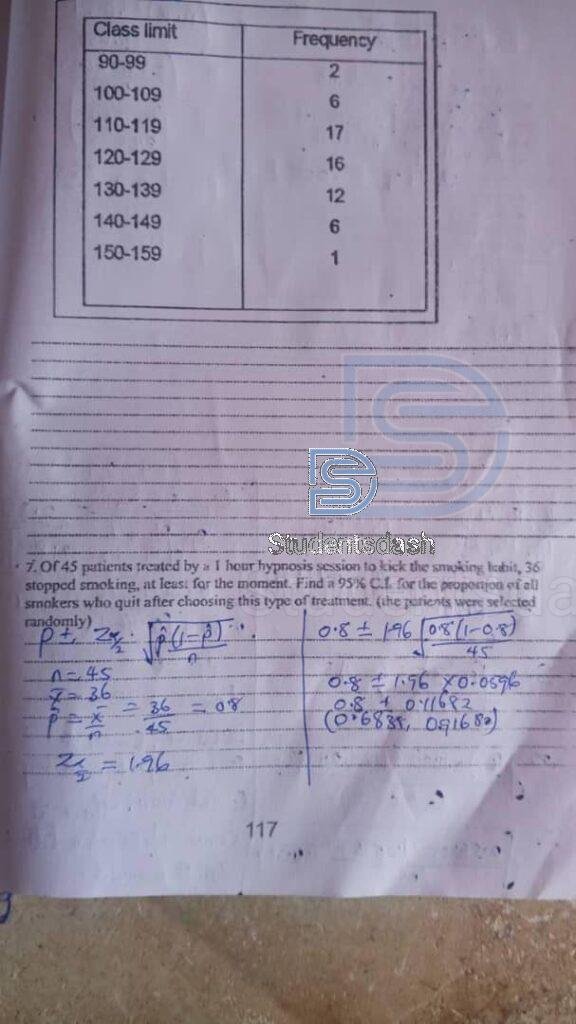 Class limit Frequency
90-99 2
100-109 6
110-119 17
120-129 16
130-139 12
140-149 6
150-159 1
Studentsdash
7. Of 45 patients treated by a 1 hour hypnosis session to kick the smoking habit, 36
stopped smoking, at least for the moment. Find a 95% C.I. for the proportion of all
smokers who quit after choosing this type of treatment. (the patients were selected
randomly)
p ± Zα/2 · √p̂(1-p̂)/n
n = 45
x = 36
p̂ = x/n = 36/45 = 0.8
Zα/2 = 1.96
0.8 ± 1.96 √0.8(1-0.8)/45
0.8 ± 1.96 × 0.0596
0.8 ± 0.11682
117